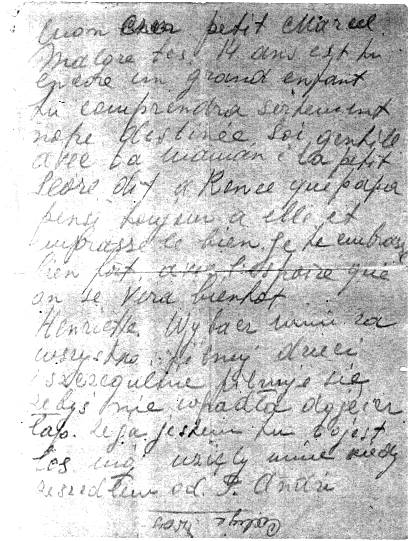 mon cher petit Marcel
Malgre tes 14 ans est tu
encore un grand enfant
tu comprendra serement
notre destinée soi gentille
avec ta maman e la petit
dit a Renee que papa
pense toujour a elle et
embrasse le bien. Je te embrasse
bien fort avec l'espoire que
on se vera bientot
Henriette. Wybacz mnie za
wszystko. Pilnuj dzieci
i szczegulnie pilnuje sie
żebyś nie wpadła do jej
łap. że ja jestem tu to jest
los mój wzieły mnie kiedy
zeszedłem od P. André